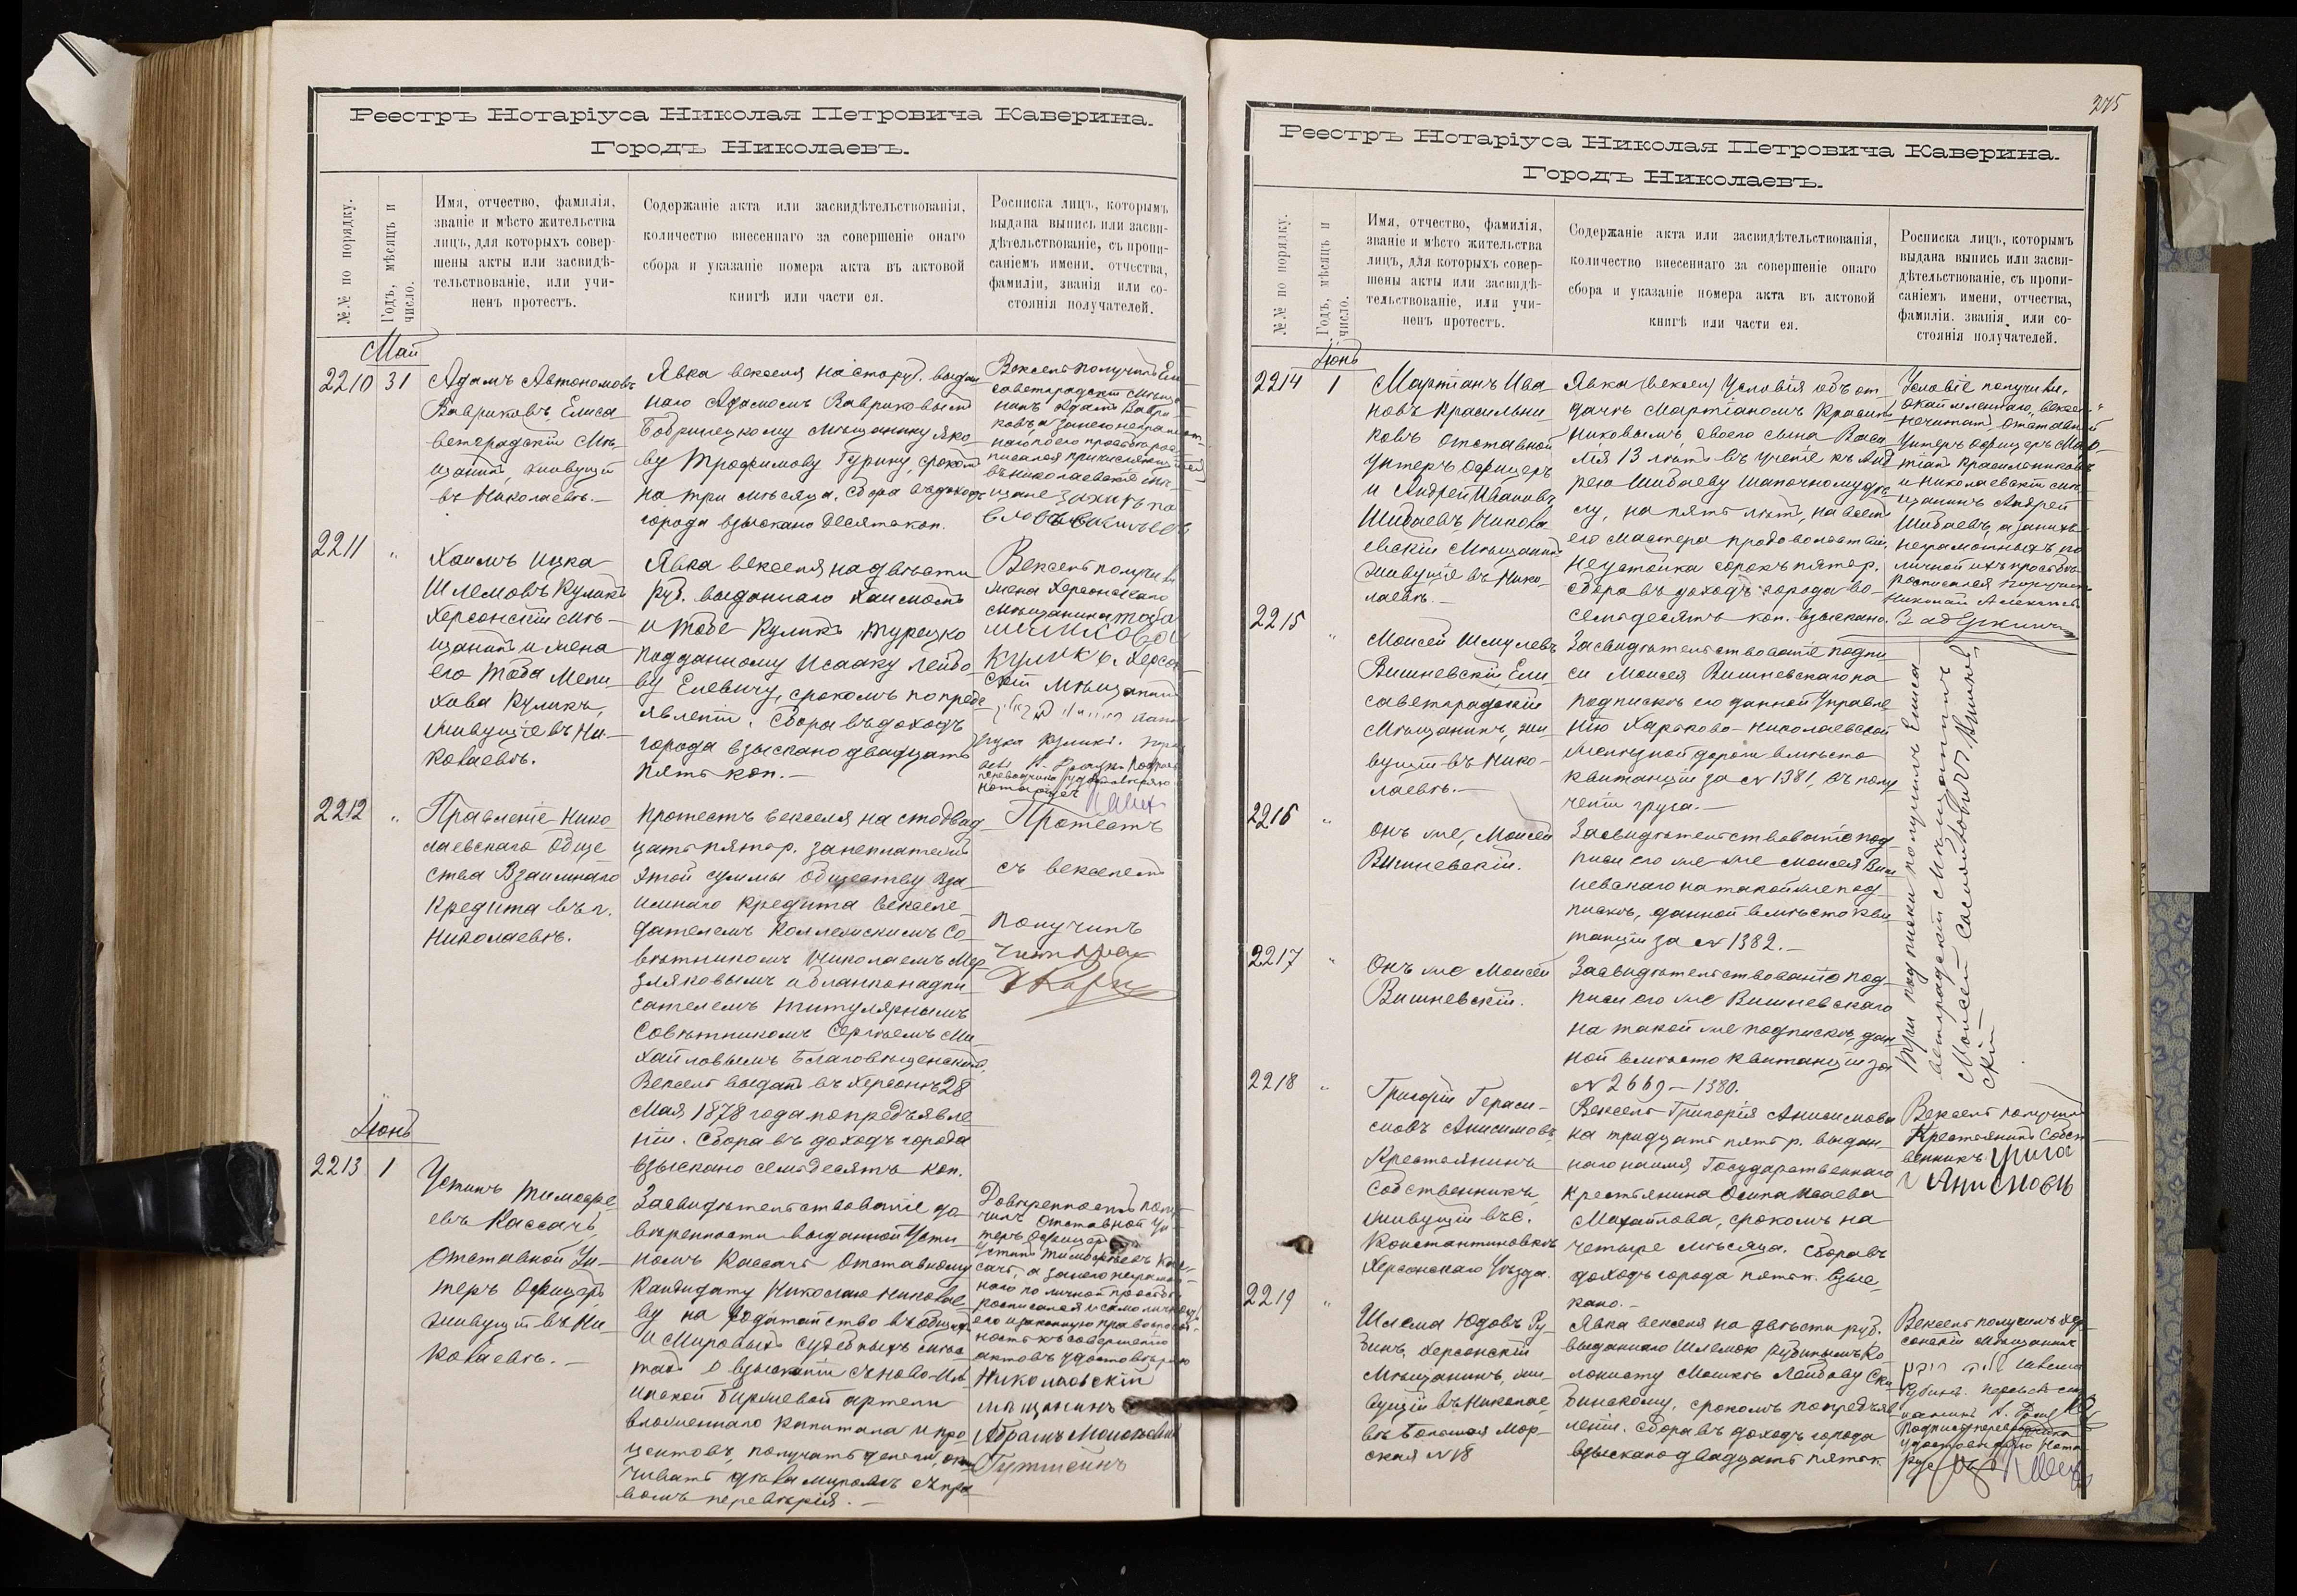 Реестръ Нотаріуса Николая Петровича Каверина.
Городъ Николаевъ.
№№ по порядку.
Годъ, мѣсяцъ и
число.
Имя, отчество, фамилія,
званіе и мѣсто жительства
лицъ, для которыхъ совер-
шены акты или засвидѣ-
тельствованіе, или учи-
ненъ протестъ.
Содержаніе акта или засвидѣтельствованія,
количество внесеннаго за совершеніе онаго
сбора и указаніе номера акта въ актовой
книгѣ или части ея.
Росписка лицъ, которымъ
выдана выпись или засви-
дѣтельствованіе, съ пропи-
саніемъ имени, отчества,
фамиліи, званія или со-
стоянія получателей.
Май
2210 31
Адамъ Автономовъ
Вавриковъ, Елиса
ветградскій Мѣ
щанинъ, живущій
въ Николаевѣ.—
Явка векселя на сто руб. выдан
наго Адамомъ Вавриковымъ
Бобринецкому мѣщанину Яко
ву Трофимову Гурину, срокомъ
на три мѣсяца. Сбора въ доходъ
города взыскано десять коп.
Вексель получилъ Ели
саветградскій Мѣща
нинъ Адамъ Ваври
ковъ, а за него неграмот
наго по его просьбѣ рос
писался
въ Николаевскіе мѣ
щане
2211 "
Хаимъ Ицка
Шлемовъ Куликъ
Херсонскій мѣ—
щанинъ и жена
его Тоба Мени
хова Куликъ,
живущіе въ Ни—
колаевѣ.
Явка векселя на двѣсти
руб. выданнаго Хаимомъ
и Тобе Куликъ турецко
подданному Исааку Лейбо
ву Елевичу, срокомъ по предъ
явленіи. Сбора въ доходъ
города взыскано двадцать
пять коп.—
Вексель получили
жена Херсонскаго
мѣщанина Тоба
Куликъ, Херсон
скій Мѣщанинъ
Ицка Куликъ.
2212 "
Правленіе Нико
лаевскаго Обще
ства Взаимнаго
Кредита въ г.
Николаевѣ.
Протестъ векселя на сто двад
цать пять р. за неплатежъ
этой суммы Обществу Вза
имнаго Кредита векселе
дателемъ Коллежскимъ Со—
вѣтникомъ Николаемъ Мер
зляковымъ и бланконадпи
сателемъ Титулярнымъ
Совѣтникомъ Сергѣемъ Ми
хайловымъ Благовѣщенскимъ.
Вексель выданъ въ Херсонѣ 28
Мая 1878 года по предъявле
ніи. Сбора въ доходъ города
взыскано семьдесятъ коп.
Протестъ
съ векселемъ
получилъ
Іюнь
2213 1
Устинъ Тимофе
евъ Кассачъ,
Отставной Ун—
теръ Офицеръ,
живущій въ Ни—
колаевѣ.—
Засвидѣтельствованіе до
вѣренности выданной Усти
номъ Кассачъ Отставному
Кандидату Николаю Николае
ву на ходатайство въ общихъ
и Мировыхъ судебныхъ мѣс
тахъ о взысканіи съ
биржевой артели
вложеннаго капитала и про
центовъ, получать деньги, окан
чивать дѣла миромъ съ пра
вомъ передовѣрія.—
Довѣренность полу
чилъ Отставной Ун
теръ Офицеръ
Устинъ Тимофеевъ Кас
сачъ, а за него неграмот
наго по личной просьбѣ
росписался и самоличность
его и законную правоспособ
ность къ совершенію
актовъ удостовѣряю
Николаевскій
мѣщанинъ
Абрамъ
275
Реестръ Нотаріуса Николая Петровича Каверина.
Городъ Николаевъ.
№№ по порядку.
Годъ, мѣсяцъ и
число.
Имя, отчество, фамилія,
званіе и мѣсто жительства
лицъ, для которыхъ совер-
шены акты или засвидѣ-
тельствованіе, или учи-
ненъ протестъ.
Содержаніе акта или засвидѣтельствованія,
количество внесеннаго за совершеніе онаго
сбора и указаніе номера акта въ актовой
книгѣ или части ея.
Росписка лицъ, которымъ
выдана выпись или засви-
дѣтельствованіе, съ пропи-
саніемъ имени, отчества,
фамиліи, званія или со-
стоянія получателей.
Іюнь
2214 1
Мартіанъ Ива
новъ Красильни
ковъ отставной
Унтеръ Офицеръ
и Андрей Ивановъ
Шибаевъ, Никола
евскій Мѣщанинъ,
живущіе въ Нико—
лаевѣ.—
Явка (векселя) Условія объ от
дачѣ Мартіаномъ Красиль
никовымъ своего сына Васи
лія 13 лѣтъ въ ученіе къ Анд
рею Шибаеву шапочному дѣ
лу, на пять лѣтъ, на всемъ
его мастера продовольствіи,
неустойка сорокъ пять р.
Сбора въ доходъ города во—
семьдесятъ коп. взыскано.
Условіе получили,
окаймленнаго "вексель"
не читать, Отставной
Унтеръ Офицеръ Мар
тіанъ Красильниковъ
и Николаевскій мѣ
щанинъ Андрей
Шибаевъ, а за нихъ
неграмотныхъ по
личной ихъ просьбѣ
росписался
Николай
2215 "
Моисей Шмулевъ
Вишневскій, Ели—
саветградскій
Мѣщанинъ, жи—
вущій въ Нико—
лаевѣ.—
Засвидѣтельствованіе подпи
си Моисея Вишневскаго на
подпискѣ его данной Управле
нію Харьково-Николаевской
желѣзной дороги вмѣсто
квитанціи за № 1381, въ полу
ченіи груза.—
При подписки получилъ Елиса
ветградскій Мѣщанинъ
2216 "
Онъ же, Моисей
Вишневскій.
Засвидѣтельствованіе под—
писи его же Моисея Виш
невскаго на такой же под
пискѣ, данной вмѣсто кви
танціи за № 1382.—
2217 "
Онъ же Моисей
Вишневскій.
Засвидѣтельствованіе под—
писи его же Вишневскаго
на такой же подпискѣ, дан
ной вмѣсто квитанціи за
№ 2669—1380.
2218 "
Григорій Гераси—
мовъ Анисимовъ,
Крестьянинъ
Собственникъ,
живущій въ с.
Константиновкѣ
Херсонскаго Уѣзда.
Вексель Григорія Анисимова
на тридцать пять р. выдан
наго на имя Государственнаго
крестьянина Осипа Исаева
Михайлова, срокомъ на
четыре мѣсяца. Сбора въ
доходъ города пять к. взыс
кано.—
Вексель получилъ
Крестьянинъ Собст
венникъ
2219 "
Шлема Юдовъ Ру—
бинъ, Херсонскій
Мѣщанинъ, жи—
вущій въ Николае
вѣ Большая Мор—
ская № 18
Явка векселя на двѣсти руб.
выданнаго Шлемою Рубинымъ Ко
лонисту Мошкѣ Лейбову Ски
бинскому, срокомъ по предъяв
леніи. Сбора въ доходъ города
взыскано двадцать пять к.
Вексель получилъ Хер
сонскій мѣщанинъ
Шлема
Рубинъ.
Подпись переводчика
удостовѣряю Нота